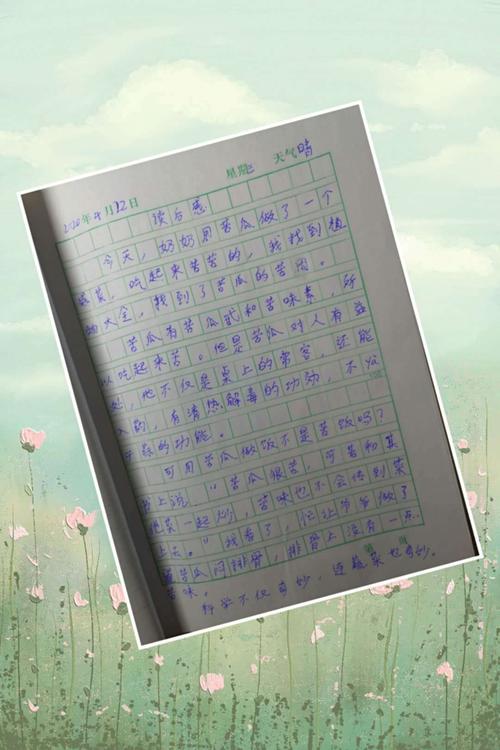 星期 天气晴
2020年4月12日 读后感
今天，奶奶用苦瓜做了一个
菜，吃起来苦苦的，我找到植
物大全，找到了苦瓜的苦因。
苦瓜有苦瓜甙和苦味素，所
以吃起来苦。但是苦瓜对人有益
处，他不仅是桌上的常客，还能
入药，有清热解毒的功効，不仅
的功能。
可用苦瓜做饭不是苦饭吗？
书上说“苦瓜很苦，可苦和其
他菜一起炒，苦味也不会传到菜
上去。”我看了，忙让爷爷做了
道苦瓜闷排骨，排骨上没有一点
苦味。
科学不仅奇妙，连蔬菜也奇妙。